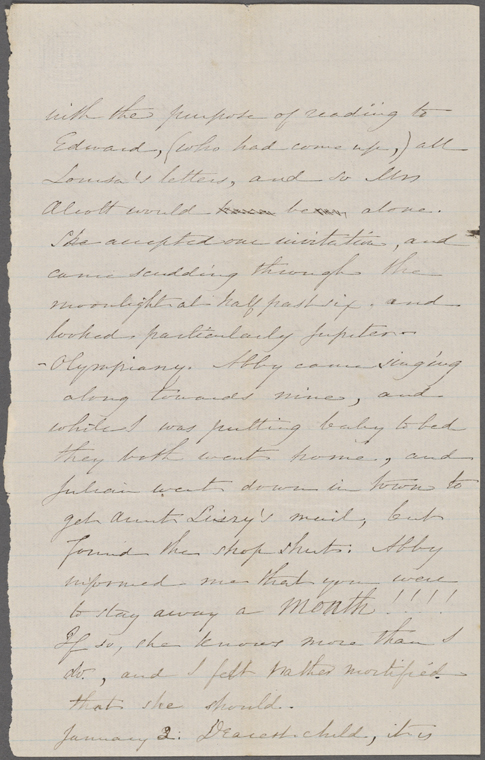 with the purpose of reading to
Edward, (who had come up,) all
Louisa's letters, and so Mrs
Alcott would be alone.
She accepted our invitation, and
came scudding through the
moonlight at half past six. and
looked particularly Jupiter-
-Olympiany. Abby came singing
along towards nine, and
while I was putting baby to bed
they both went home, and
Julian went down in town to
get Aunt Lizzy's mail, but
found the shop shut. Abby
informed me that you were
to stay away a MONTH!!!!
If so, she knows more than I
do, and I felt rather mortified
that she should.
January 2. Dearest child, it is